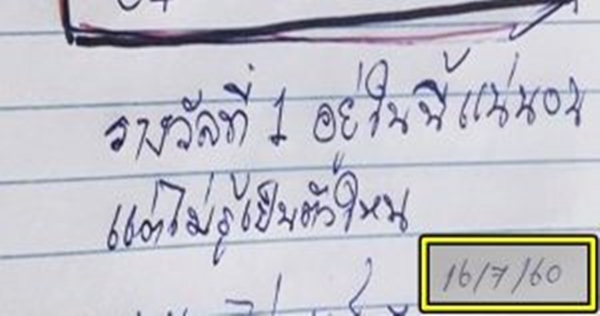 รางวัลที่ 1 อยู่ในนี้แน่นอน
แต่ไม่รู้เป็นตัวไหน
16/7/60